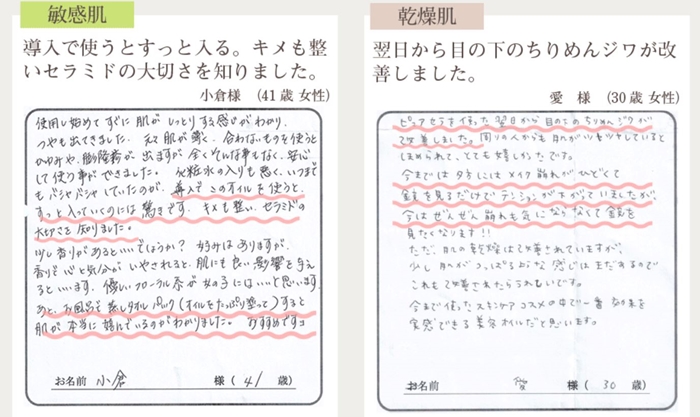 敏感肌
導入で使うとすっと入る。キメも整
いセラミドの大切さを知りました。
小倉様 (41歳 女性)
使用し始めてすぐに肌がしっとりする感じがわかり、
つやも出てきました。元々肌が弱く、合わないものを使うと
かゆみや、膨隆疹が出ますが全くそんな事もなく、安心
して使う事ができました。化粧水の入りも悪く、いつまで
もバシャバシャしていたのが、導入でこのオイルを使うと、
すっと入っていくのには驚きです。キメも整い、セラミドの
大切さを知りました。
少し香りがあるといいでしょうか? 好みはありますが、
香りで心と気分がいやされると、肌にも良い影響を与え
るといいます。優しいフローラル系が女の子にはいいと思います。
あと、お風呂で蒸しタオルパック(オイルをたっぷり塗って)すると
肌が本当に喜んでいるのがわかりました。おすすめですョ
お名前 小倉 様 ( 41 歳)
乾燥肌
翌日から目の下のちりめんジワが改
善しました。
愛 様 (30歳 女性)
ピュアセラを使った翌日から目の下のちりめんジワが
改善しました。周りの人からも肌がツヤツヤしていると
ほめられて、とても嬉しかったです。
今までは夕方にはメイク崩れがひどくて
鏡を見るだけでテンションが下がっていましたが、
今はぜんぜん崩れも気にならなくて鏡を
見たくなります!!
ただ、肌の乾燥は改善されていますが、
少し肌がつっぱるような感じはまだするので
これも改善されたらうれしいです。
今まで使ったスキンケアコスメの中で一番効果を
実感できる美容オイルだと思います。
お名前 愛 様 ( 30 歳)